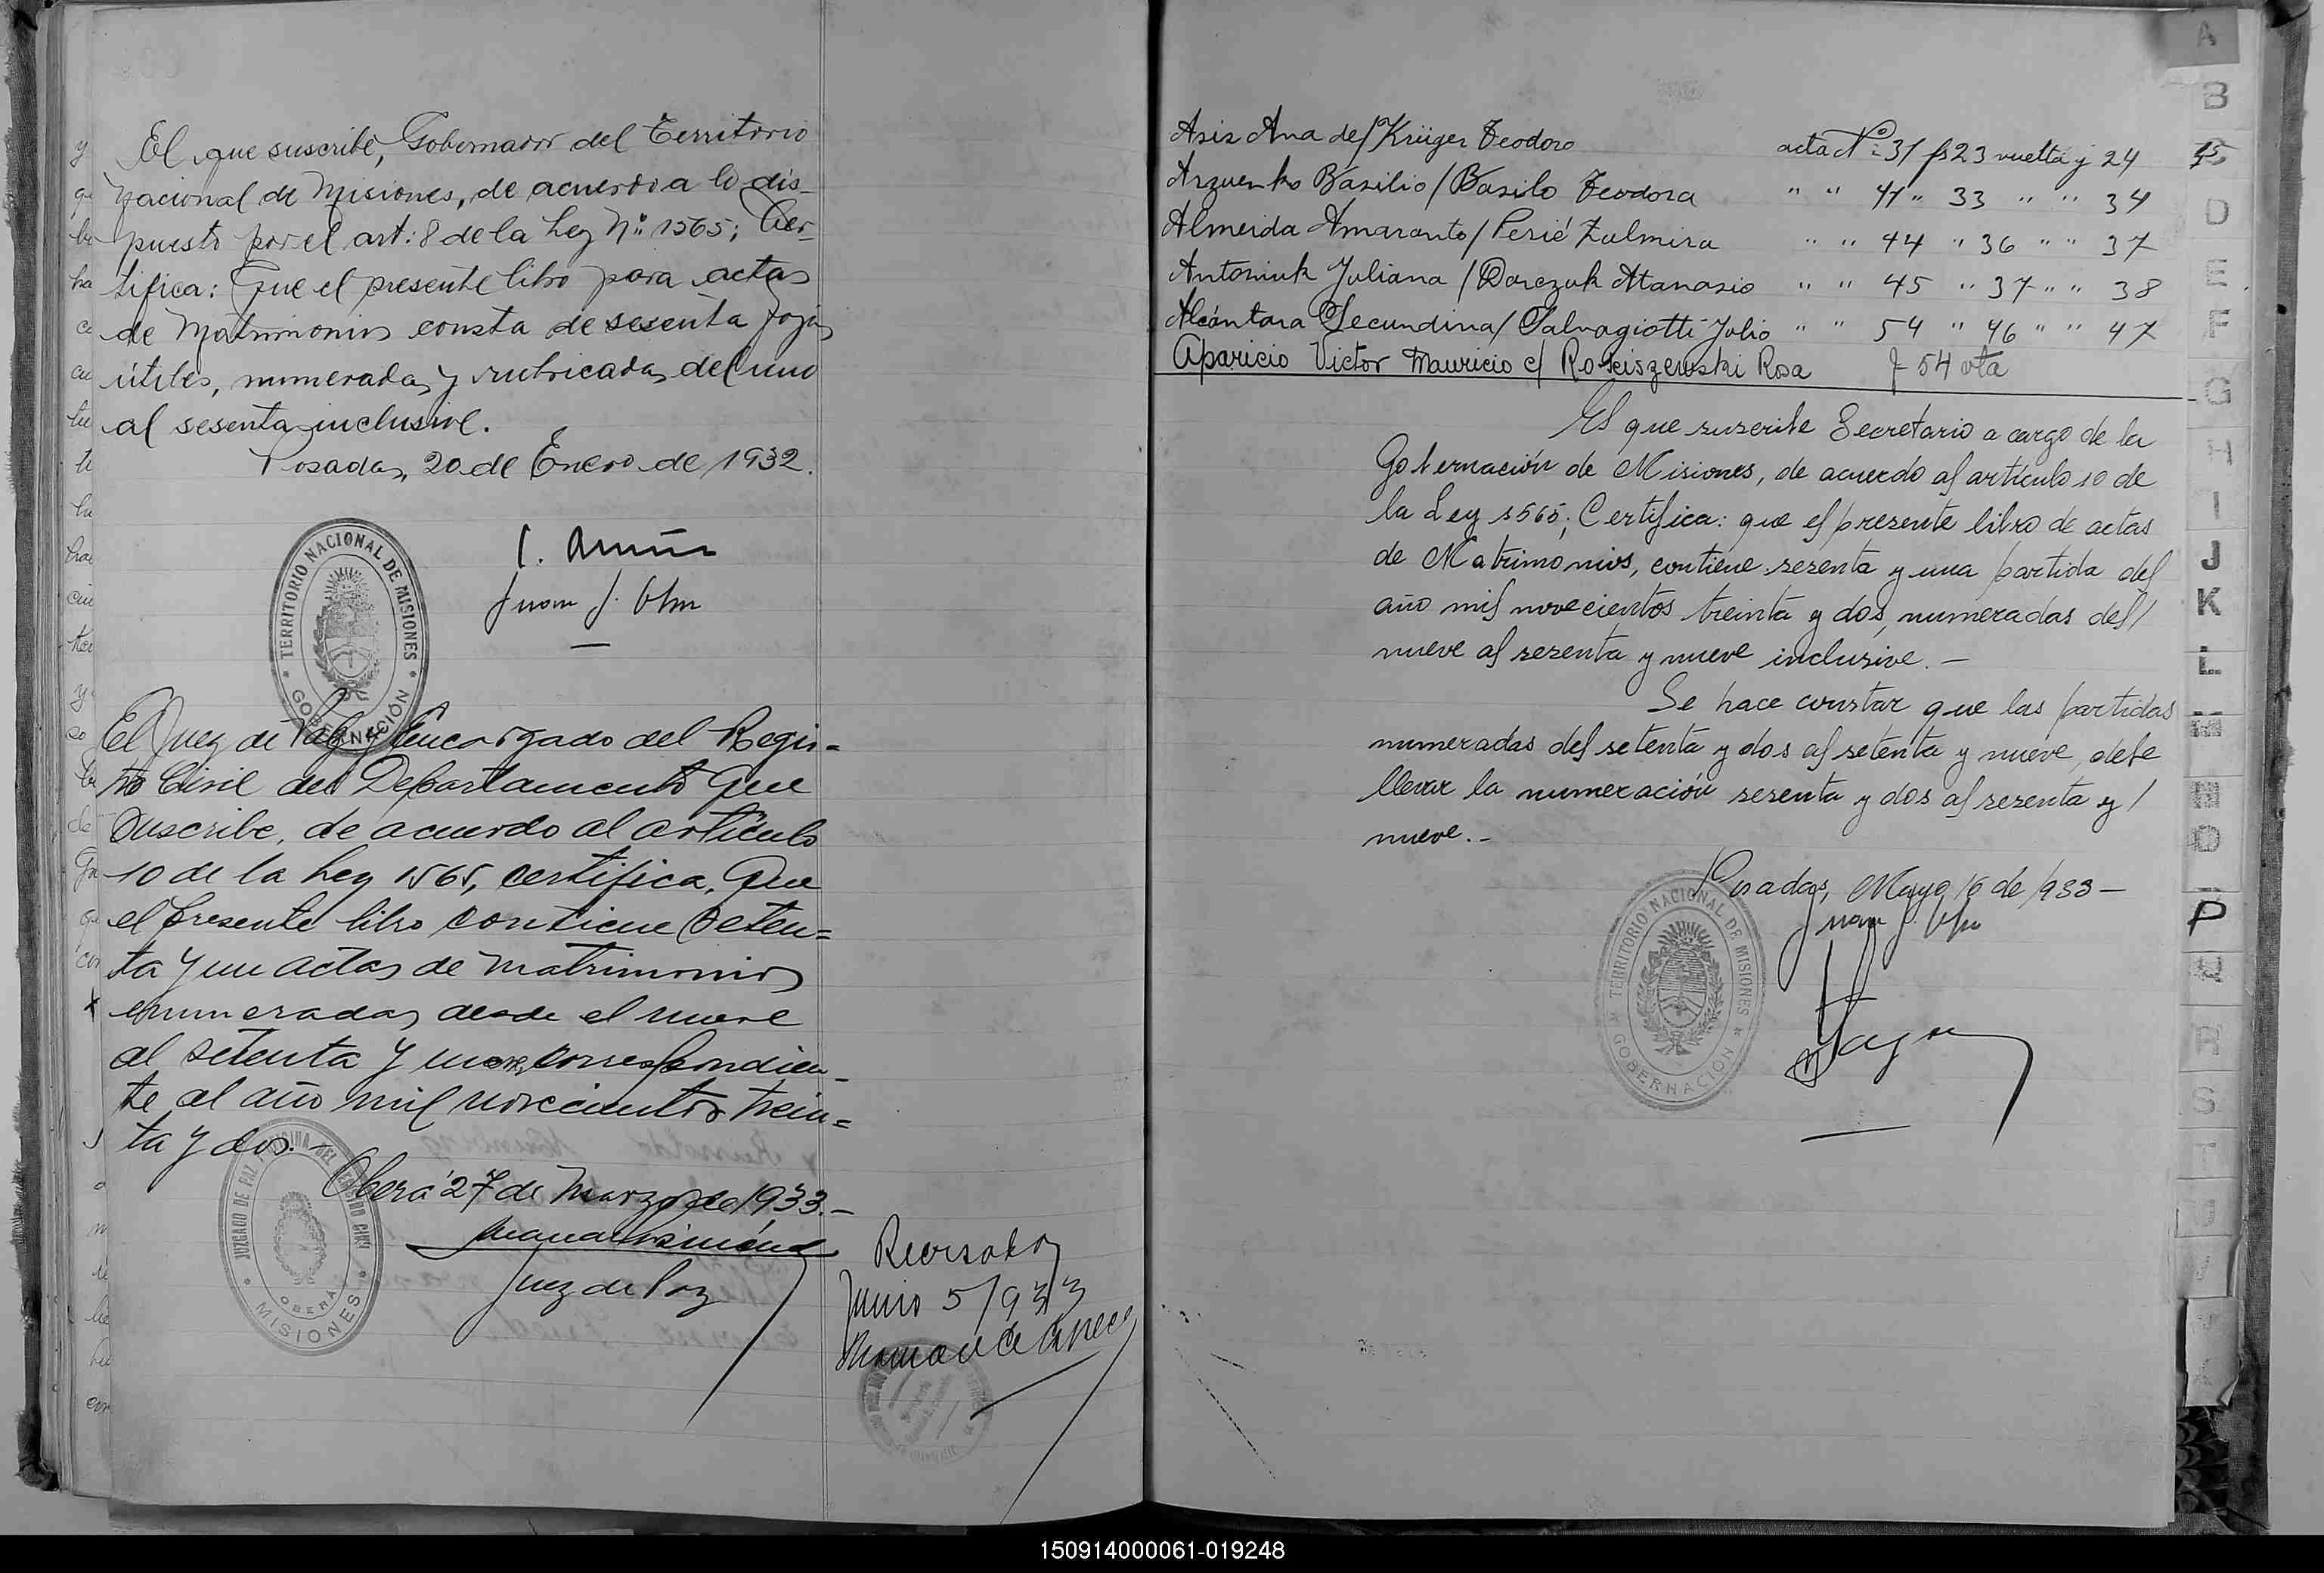 El que suscribe, Gobernador del Territorio
Nacional de Misiones, de acuerdo a lo dis-
puesto por el art: 8 de la Ley Nº 1565; Cer-
tifica: Que el presente libro para actas
de Matrimonios consta de sesenta fojas
útiles, numeradas y rubricadas del uno
al sesenta inclusive.
Posadas, 20 de Enero de 1932.
TERRITORIO NACIONAL DE MISIONES
GOBERNACIÓN
El Juez de Paz y Encargado del Regis=
tro Civil del Departamento que
suscribe, de acuerdo al artículo
10 de la Ley 1565, certifica, Que
el presente libro contiene seten=
ta y un actas de matrimonios
enumeradas desde el nueve
al setenta y nueve, correspondien-
te al año mil novecientos trein=
ta y dos.-
Oberá 27 de Marzo de 1933.-
Juez de Paz
JUZGADO DE PAZ Y OFICINA DEL REGISTRO CIVIL
OBERÁ
MISIONES
Revisado
Junio 5/933
Asis Ana de / Krüger Teodoro acta Nº 31 fs 23 vuelta y 24
Arzuenko Basilio / Basilo Teodora " " 41 " 33 " " 34
Almeida Amaranto / Perié Zulmira " " 44 " 36 " " 37
Antoniuk Juliana / Darczuk Atanasio " " 45 " 37 " " 38
Alcántara Secundina / Salvagiotti Julio " " 54 " 46 " " 47
Aparicio Victor Mauricio c/ Rosciszewski Rosa f 54 vta
El que suscribe Secretario a cargo de la
Gobernación de Misiones, de acuerdo al artículo 10 de
la Ley 1565; Certifica: que el presente libro de actas
de Matrimonios, contiene sesenta y una partida del
año mil novecientos treinta y dos, numeradas del/
nueve al sesenta y nueve inclusive.-
Se hace constar que las partidas
numeradas del setenta y dos al setenta y nueve, debe
llevar la numeración sesenta y dos al sesenta y/
nueve.-
Posadas, Mayo 16 de 1933-
TERRITORIO NACIONAL DE MISIONES
GOBERNACIÓN
A
B
D
E
F
G
H
I
J
K
L
M
N
O
P
R
S
T
U
150914000061-019248